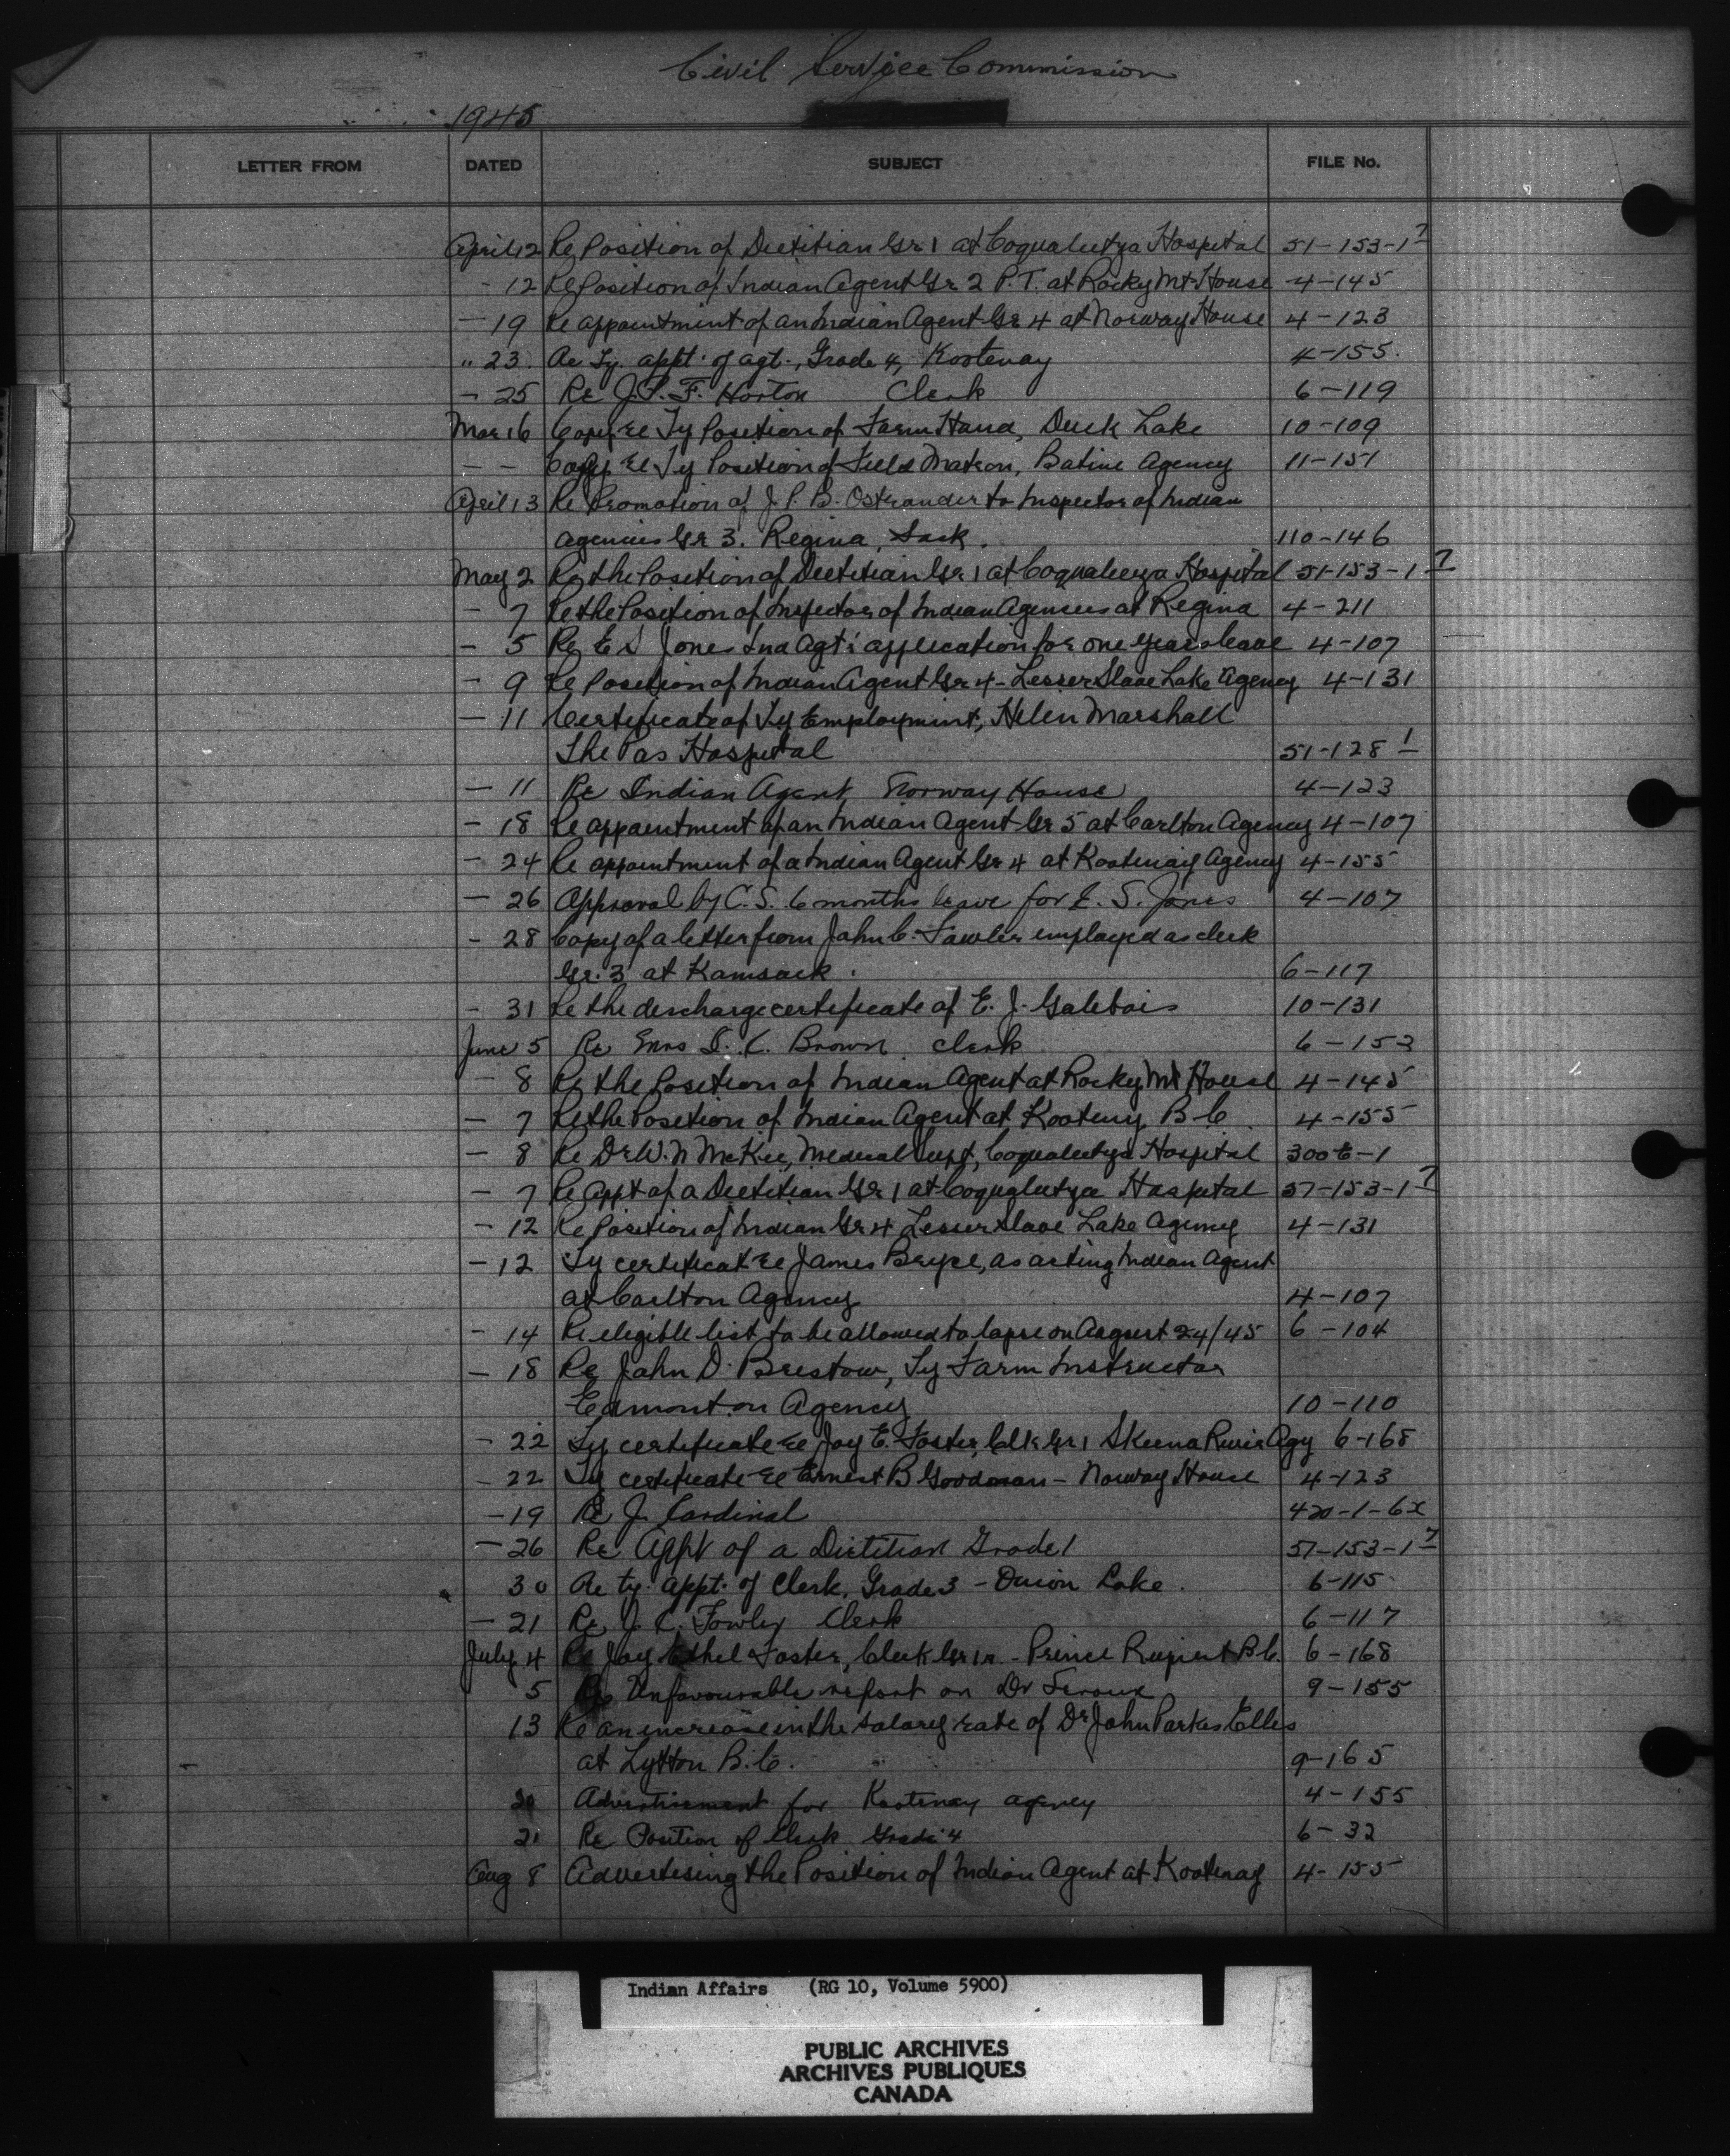 Civil Service Commission
1945
LETTER FROM DATED SUBJECT FILE No.
April 12 Re Position of Dietitian Gr 1 at Coqualeetza Hospital 51-153-1 7
- 12 Re Position of Indian Agent Gr 2 P.T. at Rocky Mt House 4-145
- 19 Re appointment of an Indian Agent Gr 4 at Norway House 4-123
" 23. Re Ty. appt. of agt., Grade 4, Kootenay 4-155.
- 25 Re J.P.F. Horton Clerk 6-119
Mar 16 Copy re Ty Position of Farm Hand, Duck Lake 10-109
- - Copy re Ty Position of Field Matron, Batine Agency 11-151
April 13 Re Promotion of J.P.B. Ostrander to Inspector of Indian
agencies Gr 3. Regina, Sask. 110-146
May 2 Re the Position of Dietitian Gr 1 at Coqualeeza Hospital 51-153-1 7
- 7 Re the Position of Inspector of Indian Agencies at Regina 4-211
- 5 Re E S Jones Ind Agt's application for one years leave 4-107
- 9 Re Position of Indian Agent Gr 4 - Lesser Slave Lake Agency 4-131
- 11 Certificate of Ty Employment, Helen Marshall
The Pas Hospital 51-128 1
- 11 Re Indian Agent Norway House 4-123
- 18 Re appointment of an Indian Agent Gr 5 at Carlton Agency 4-107
- 24 Re appointment of a Indian Agent Gr 4 at Kootenay Agency 4-155
- 26 Approval by C.S. 6 months leave for E. S. Jones 4-107
- 28 Copy of a letter from John C. Fowler employed as clerk
Gr. 3 at Kamsack. 6-117
- 31 Re the discharge certificate of E. J. Galebois 10-131
June 5 Re Mrs L. C. Brown clerk 6-152
- 8 Re the Position of Indian Agent at Rocky Mt House 4-145
- 7 Re the Position of Indian Agent at Kooteny B.C. 4-155
- 8 Re Dr W. N McKee, Medical Supt, Coqualeetza Hospital 300-1
- 7 Re Appt of a Dietitian Gr 1 at Coqualeetza Hospital 57-153-1 7
- 12 Re Position of Indian Gr 4 Lesser Slave Lake Agency 4-131
- 12 Ty certificate re James Bryce, as acting Indian Agent
at Carlton Agency 4-107
- 14 Re eligible list to be allowed to lapse on August 24/45 6-104
- 18 Re John D. Brestow, Ty Farm Instructor
Edmonton Agency 10-110
- 22 Ty certificate re Joy E. Foster, Clk Gr 1 Skeena River Agy 6-168
- 22 Ty certificate re Ernest B Goodman - Norway House 4-123
- 19 Re J. Cardinal 420-1-6x
- 26 Re Appt of a Dietitian Grade 1 57-153-1 7
30 Re ty. appt. of Clerk, Grade 3 - Onion Lake. 6-115
- 21 Re J. C. Fowler Clerk 6-117
July 4 Re Joy Ethel Foster, Clerk Gr 1 - Prince Rupert B.C. 6-168
5 Re Unfavourable report on Dr 9-155
13 Re an increase in the salary rate of Dr John Parkes Ellis
at Lytton B.C. 9-165
20 Advertisement for Kootenay agency 4-155
21 Re Position of Clerk Grade 4 6-32
Aug 8 Advertising the Position of Indian Agent at Kootenay 4-155
Indian Affairs (RG 10, Volume 5900)
PUBLIC ARCHIVES
ARCHIVES PUBLIQUES
CANADA